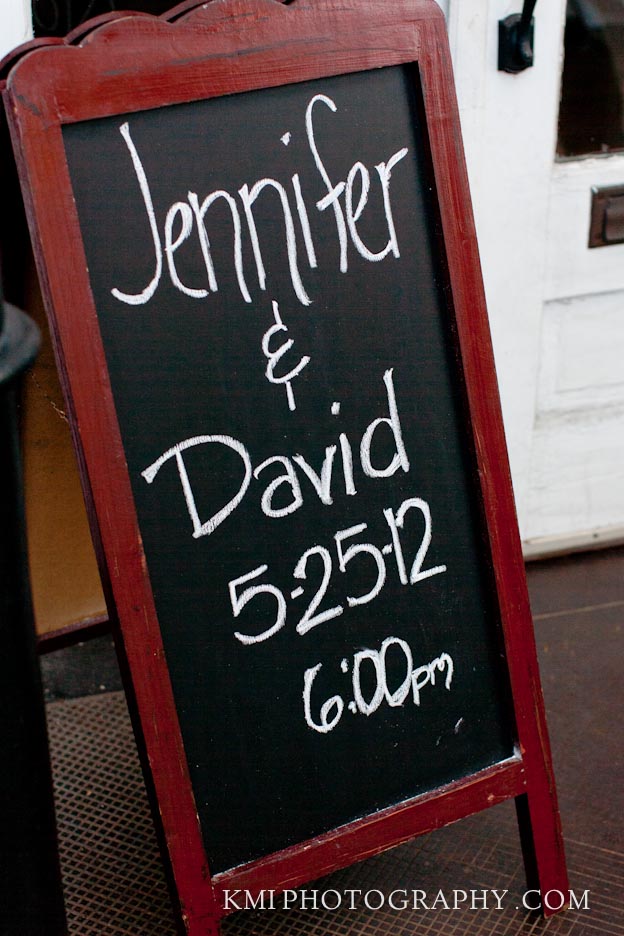 Jennifer
&
David
5-25-12
6:00pm
KMIPHOTOGRAPHY.COM